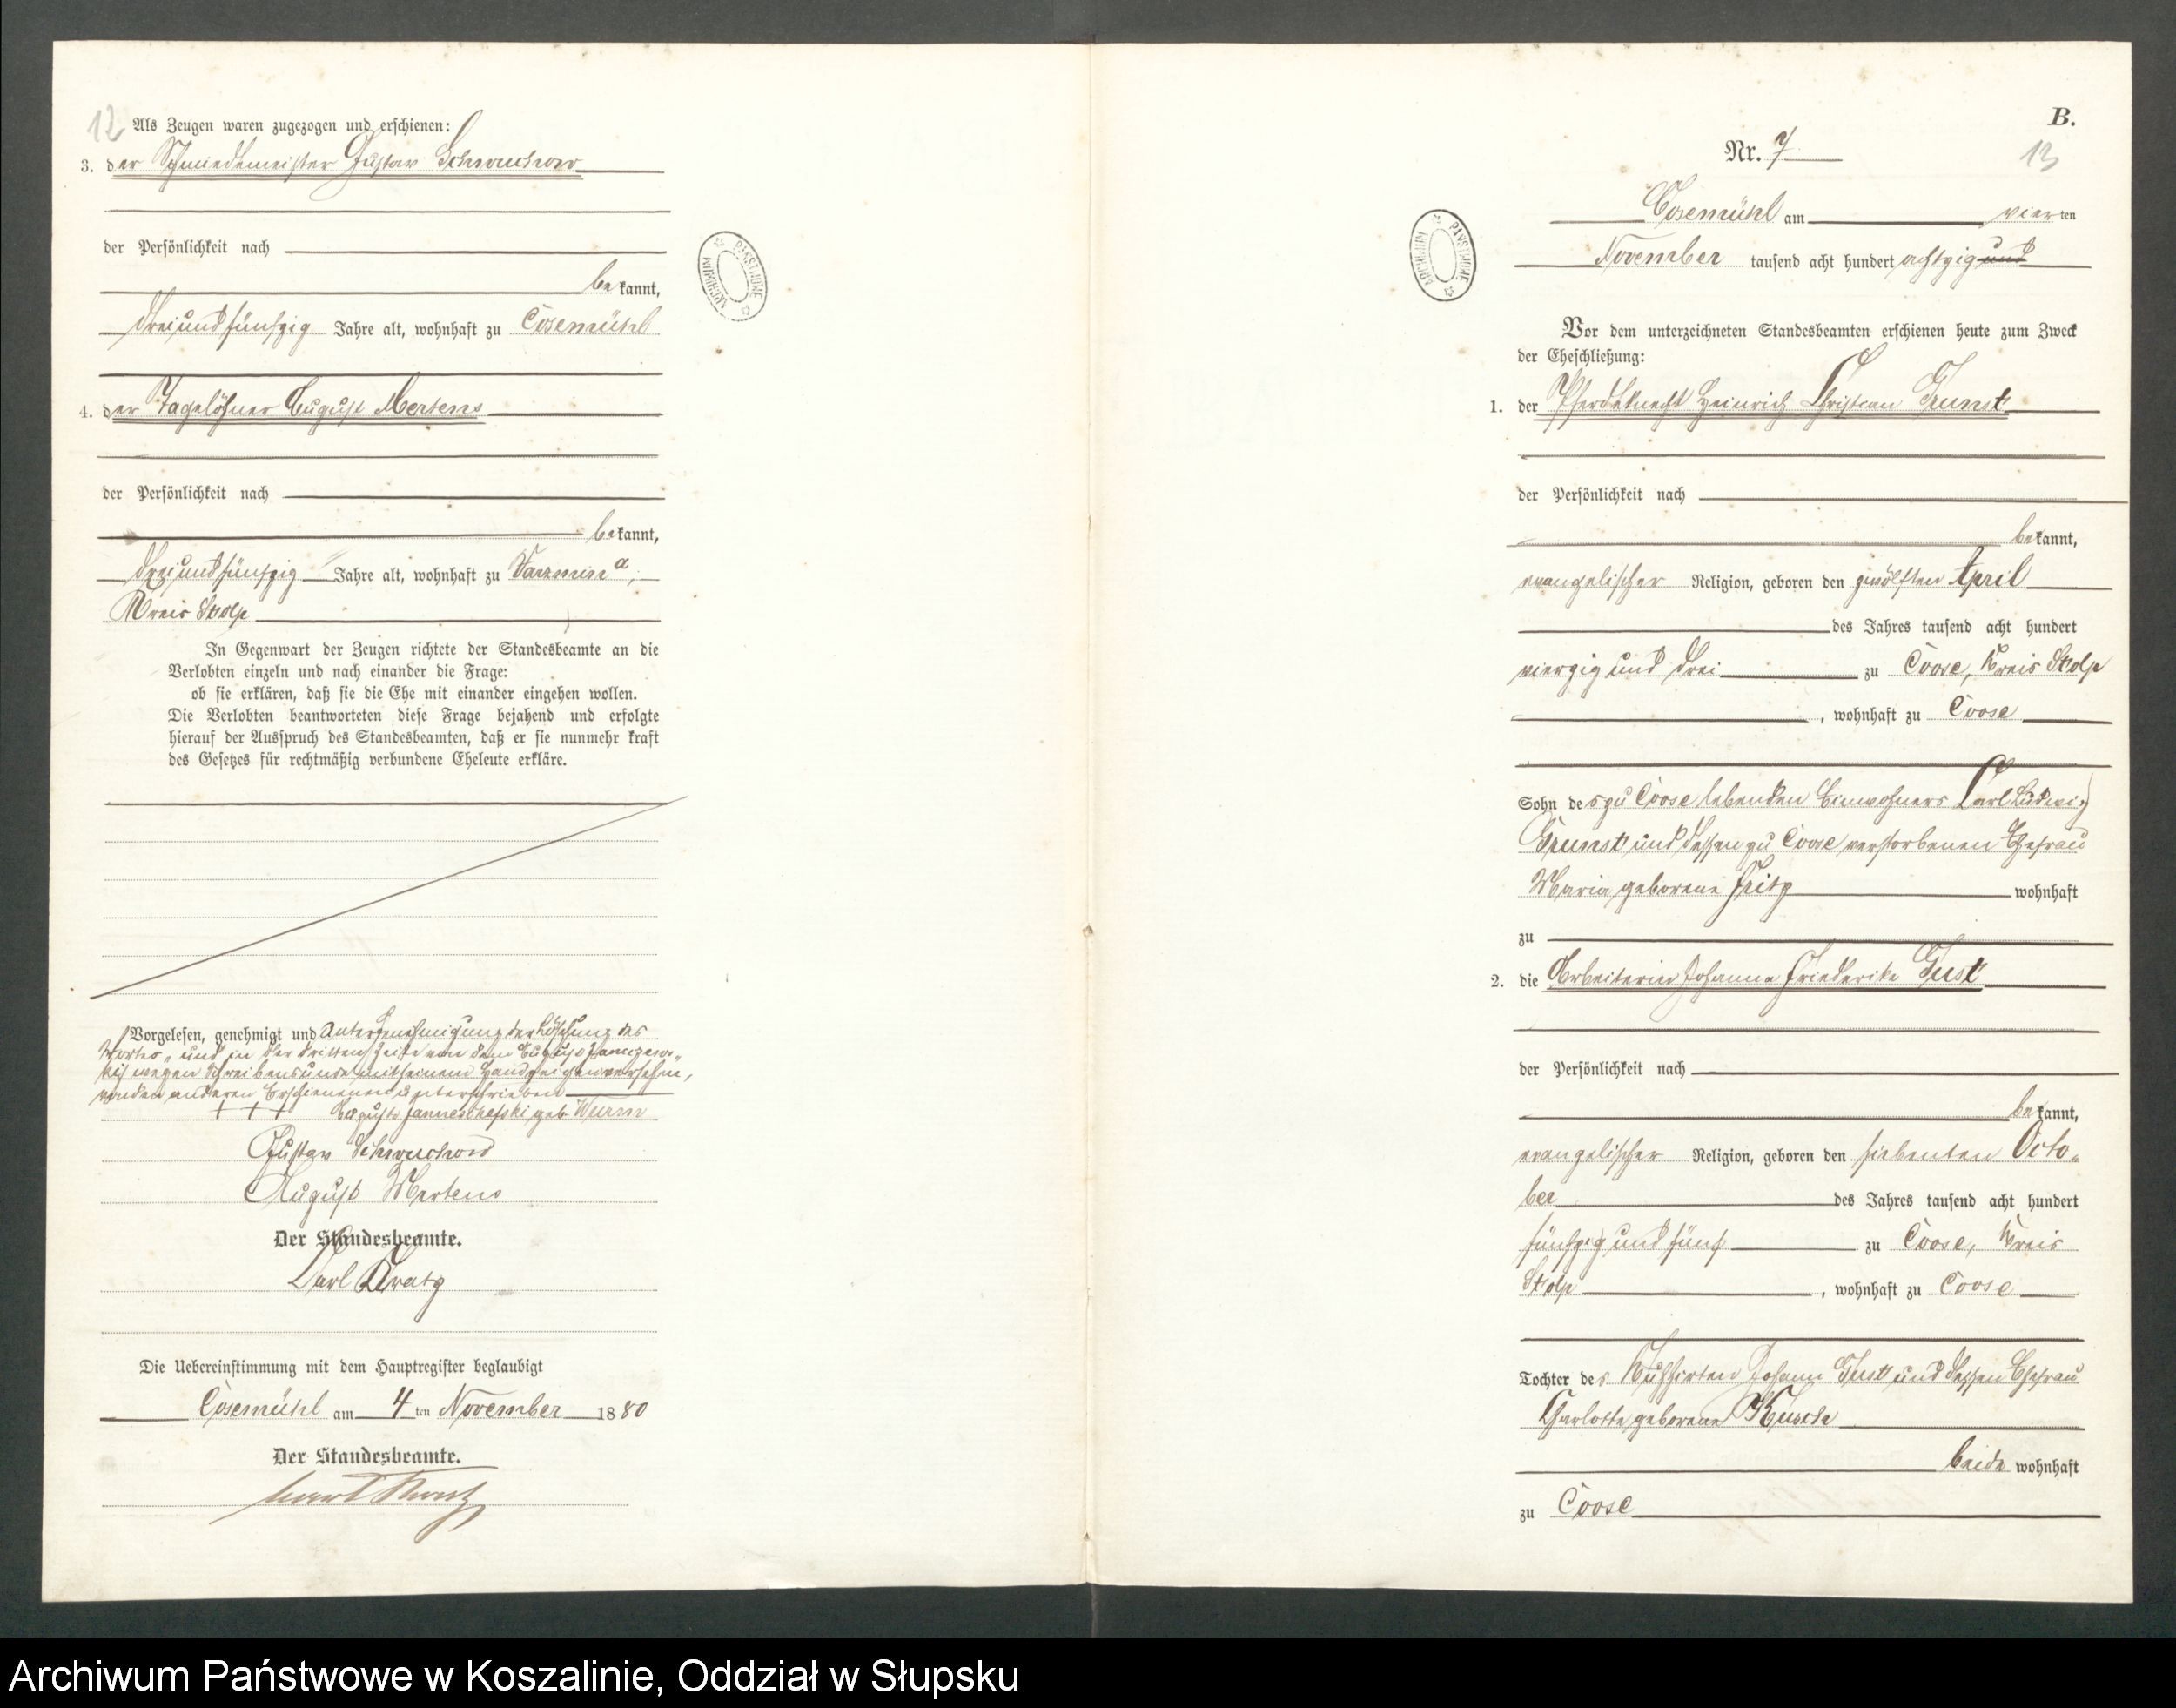 12
Als Zeugen waren zugezogen und erschienen:
3. der Schmiedemeister Gustav Schwuchow
der Persönlichkeit nach
bekannt,
dreiundfünfzig Jahre alt, wohnhaft zu Cösemühl
4. der Tagelöhner August Mertens
der Persönlichkeit nach
bekannt,
dreiundfünfzig Jahre alt, wohnhaft zu Warzmin
Kreis Stolp
In Gegenwart der Zeugen richtete der Standesbeamte an die
Verlobten einzeln und nach einander die Frage:
ob sie erklären, daß sie die Ehe mit einander eingehen wollen.
Die Verlobten beantworteten diese Frage bejahend und erfolgte
hierauf der Ausspruch des Standesbeamten, daß er sie nunmehr kraft
des Gesetzes für rechtmäßig verbundene Eheleute erkläre.
Vorgelesen, genehmigt und unter Genehmigung der Löschung des
Wortes „und" in der dritten Zeile von dem
wegen Schreibensunkunde mit seinem Handzeichen versehen,
von den anderen Erschienenen unterschrieben
+ + + geb. Wurm
Gustav Schwuchow
August Mertens
Der Standesbeamte.
Carl Kratz
Die Uebereinstimmung mit dem Hauptregister beglaubigt
Cösemühl am 4ten November 1880
Der Standesbeamte.
Carl Kratz
B.
Nr. 7
13
Cösemühl am vierten
November tausend acht hundert achtzig und
Vor dem unterzeichneten Standesbeamten erschienen heute zum Zweck
der Eheschließung:
1. der Pferdeknecht Heinrich Christian Grunst
der Persönlichkeit nach
bekannt,
evangelischer Religion, geboren den zwölften April
des Jahres tausend acht hundert
vierzig und drei zu Coose, Kreis Stolp
, wohnhaft zu Coose
Sohn des zu Coose lebenden Einwohners Carl Ludwig
Grunst und dessen zu Coose verstorbenen Ehefrau
Maria geborene Fritz wohnhaft
zu
2. die Arbeiterin Johanna Friederike Gust
der Persönlichkeit nach
bekannt,
evangelischer Religion, geboren den siebenten Octo-
ber des Jahres tausend acht hundert
fünfzig und fünf zu Coose, Kreis
Stolp, wohnhaft zu Coose
Tochter des Kuhhirten Johann Gust und dessen Ehefrau
Charlotte geborene
beide wohnhaft
zu Coose
ARCHIWUM PAŃSTWOWE
ARCHIWUM PAŃSTWOWE
Archiwum Państwowe w Koszalinie, Oddział w Słupsku